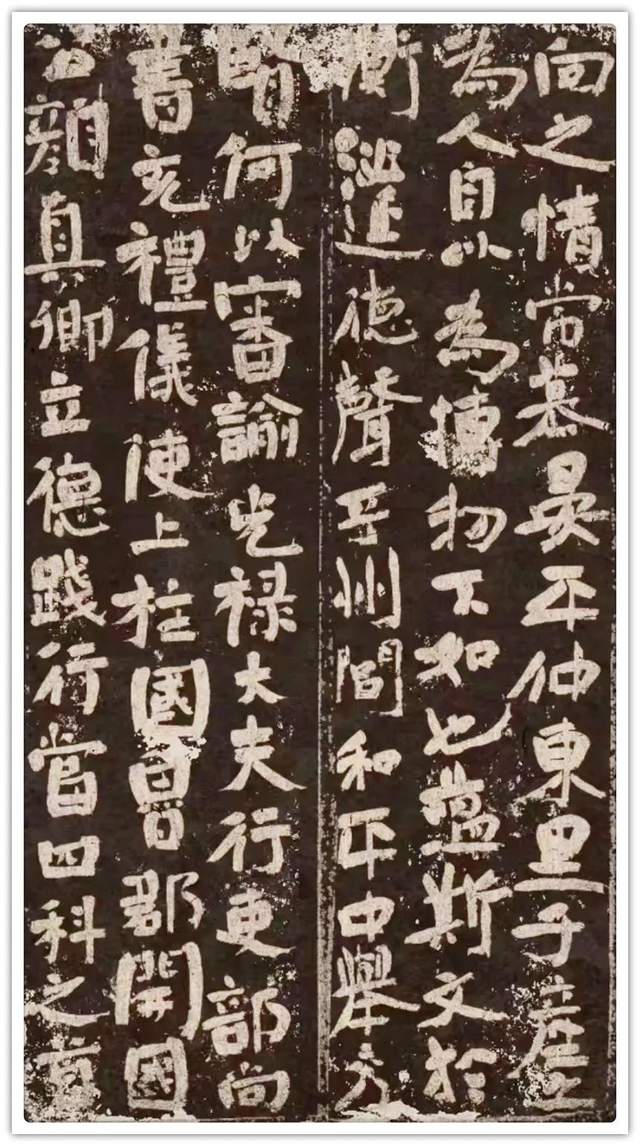 向之情常慕晏平仲東里子産
為人自以為博物不如也蘊斯文於
衡延德聲于州閭和平中舉方
賢何以審諭光禄大夫行吏部尚
書充禮儀使上柱國魯郡開國
公顔真卿立德踐行當四科之首